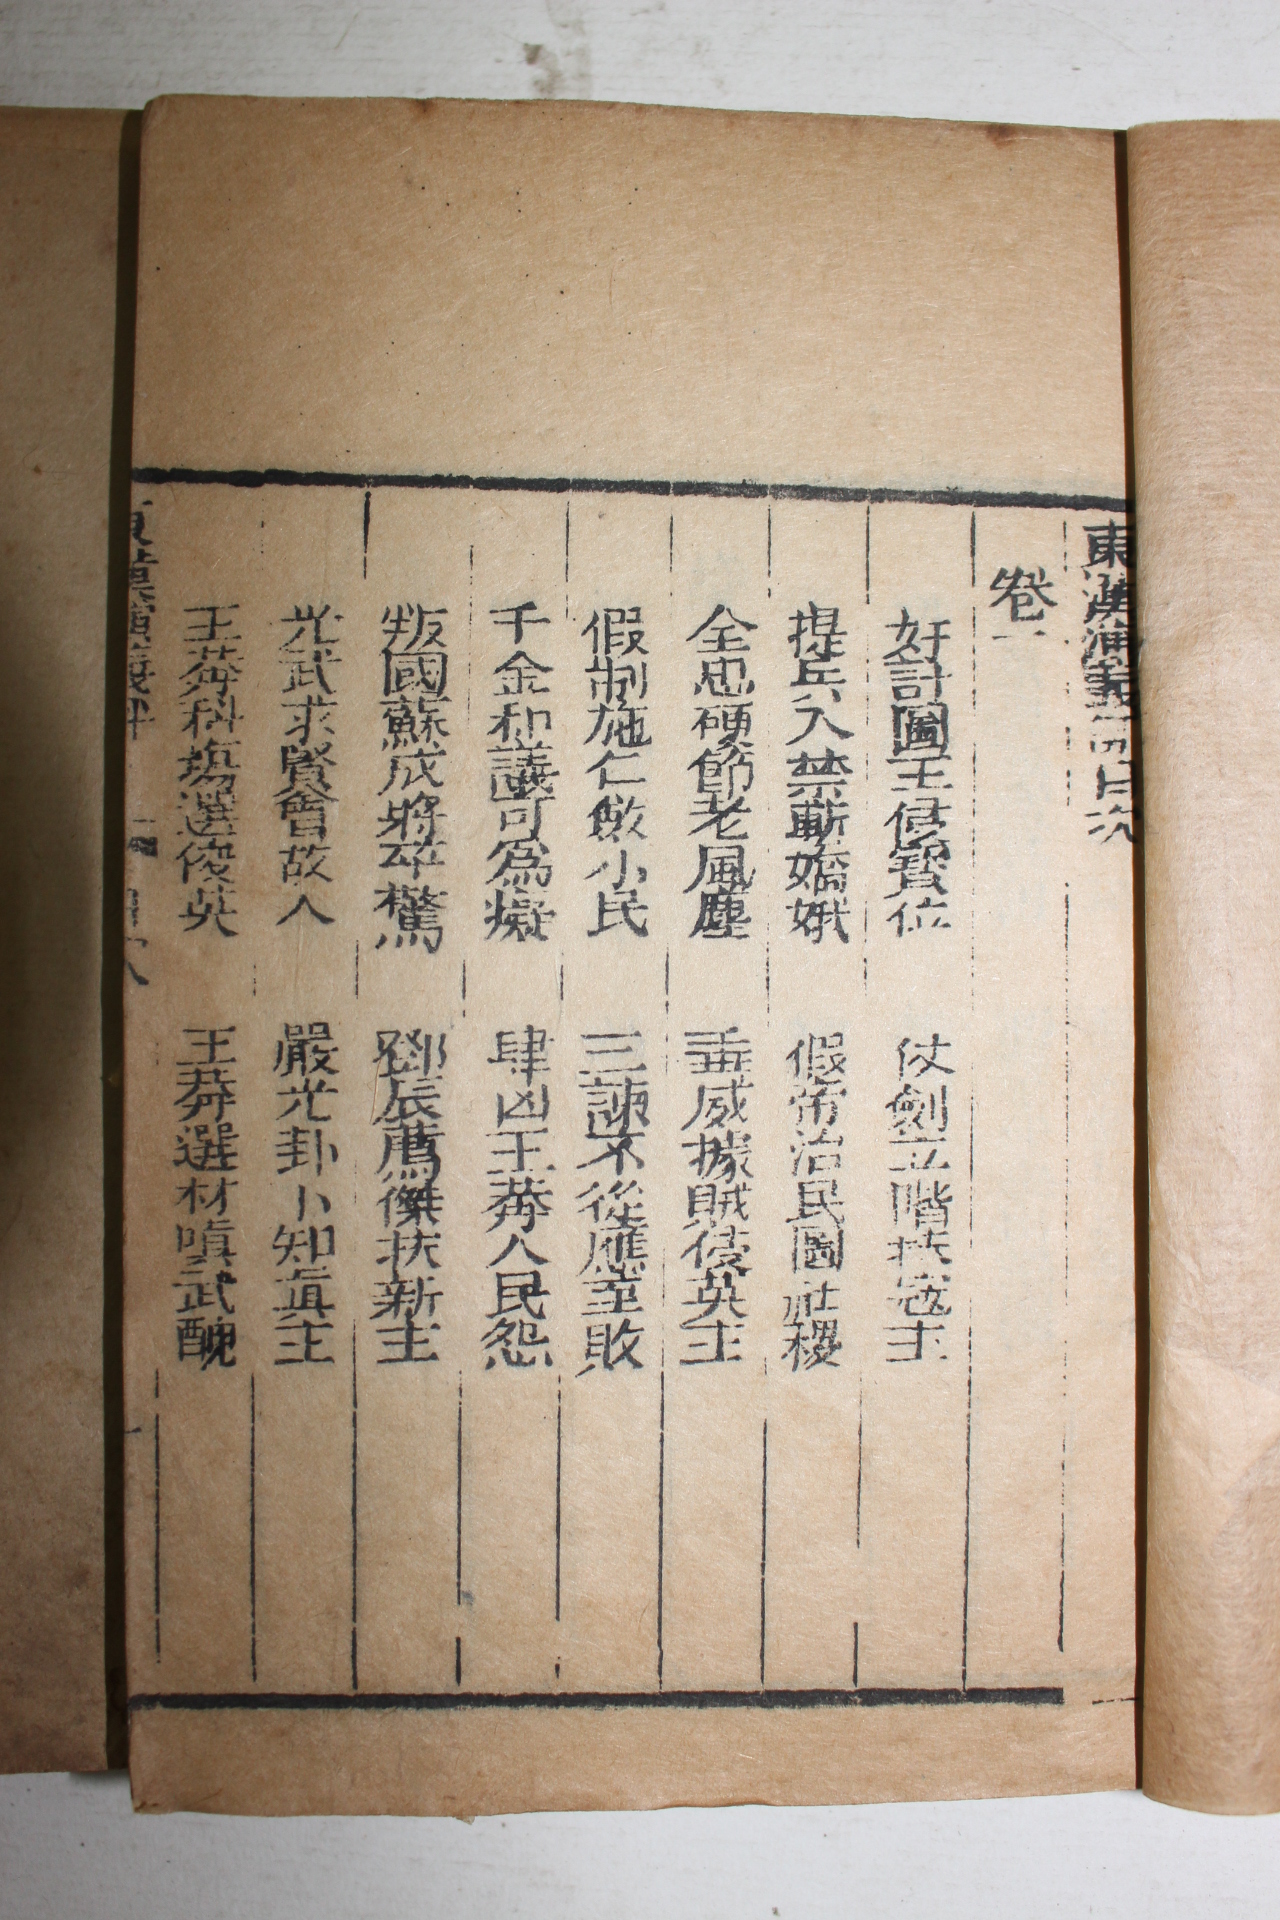 東漢演義評目次
卷一
奸計圖王侵寶位　仗劍立階扶冦主
提兵入禁斬嬌娥　假帝治民圖社稷
全忠硬節老風塵　垂威據賊侵英主
假制施仁斂小民　三諫不從應至敗
千金和議可為癡　肆凶王莽人民怨
叛國蘇成將卒驚　鄧辰薦傑扶新主
光武求賢會故人　嚴光卦卜知真主
王莽科塲選俊英　王莽選材嗔武醜
東漢演義評